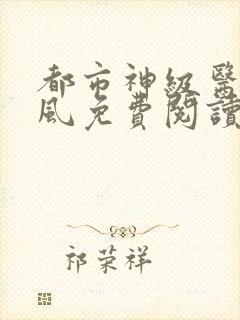 都市神級醫
風免費閱讀
祁荣祥